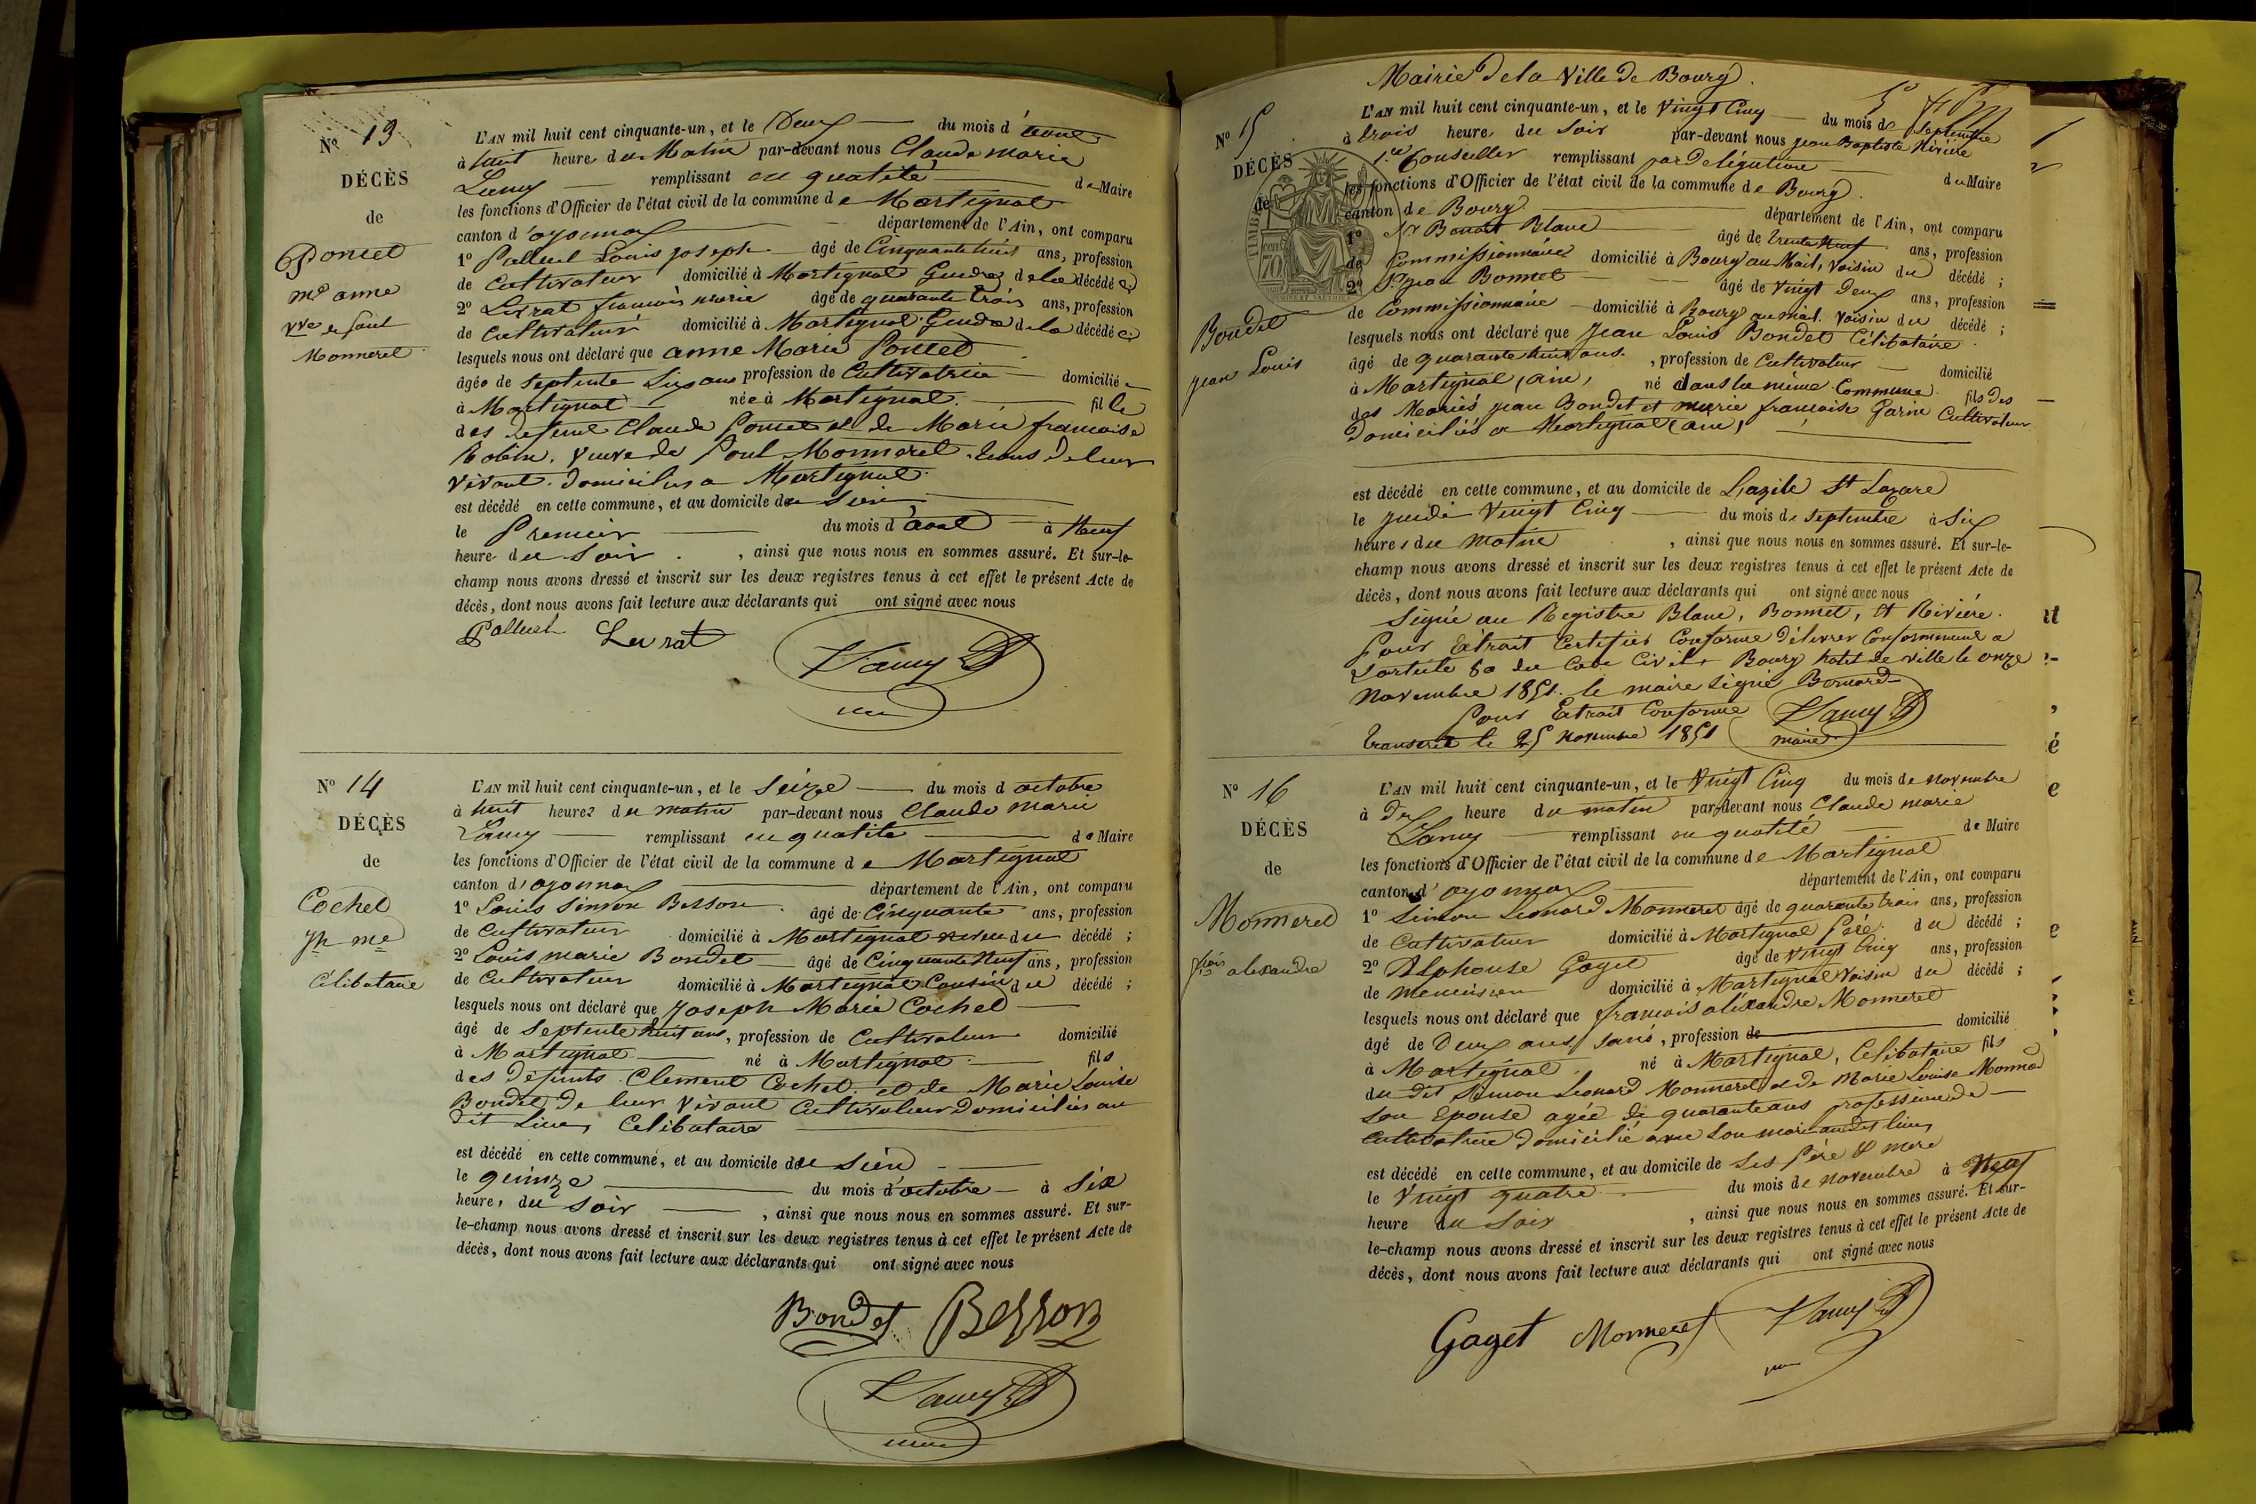 Nº 13
DÉCÈS
de
Poncet
mie anne
vve de Paul
Monneret
L'AN mil huit cent cinquante-un, et le Deux du mois d'aout
à huit heure du Matin par-devant nous Claude marie
Lamy remplissant en qualité de Maire
les fonctions d'Officier de l'état civil de la commune de Martignat
canton d'oyonnax département de l'Ain, ont comparu
1º Palluel Louis joseph âgé de Cinquante huit ans, profession
de Cultivateur domicilié à Martignat Gendre de la décédée
2º Levrat françois marie âgé de quarante trois ans, profession
de Cultivateur domicilié à Martignat Gendre de la décédée
lesquels nous ont déclaré que anne Marie Poncet
âgée de septente Six ans profession de Cultivatrice domiciliée
à Martignat née à Martignat fille
des defunt Claude Poncet et de Marie françoise
veuve de Paul Monneret. tous de leur
vivant domiciliés a Martignat.
est décédé en cette commune, et au domicile du Sien
le Premier du mois d'aout à Neuf
heure du Soir, ainsi que nous nous en sommes assuré. Et sur-le-
champ nous avons dressé et inscrit sur les deux registres tenus à cet effet le présent Acte de
décès, dont nous avons fait lecture aux déclarants qui ont signé avec nous
Palluel Levrat Lamy
Nº 14
DÉCÈS
de
Cochet
jh mie
Célibataire
L'AN mil huit cent cinquante-un, et le Seize du mois d'octobre
à huit heures du matin par-devant nous Claude Marie
Lamy remplissant en qualité de Maire
les fonctions d'Officier de l'état civil de la commune de Martignat
canton d'oyonnax département de l'Ain, ont comparu
1º Louis Simeon Besson âgé de Cinquante ans, profession
de Cultivateur domicilié à Martignat neveu du décédé ;
2º Louis marie Bondet âgé de Cinquante Neuf ans, profession
de Cultivateur domicilié à Martignat Cousin du décédé ;
lesquels nous ont déclaré que Joseph Marie Cochet
âgé de Septente huit ans, profession de Cultivateur domicilié
à Martignat né à Martignat fils
des défunts Clement Cochet et de Marie Louise
Bondet de leur vivant Cultivateur Domiciliés au
dit Lieu, Celibataire
est décédé en cette commune, et au domicile du Sien
le quinze du mois d'octobre à Six
heure, du Soir, ainsi que nous nous en sommes assuré. Et sur-
le-champ nous avons dressé et inscrit sur les deux registres tenus à cet effet le présent Acte de
décès, dont nous avons fait lecture aux déclarants qui ont signé avec nous
Bondet Besson
Lamy
Mairie de la Ville de Bourg.
Nº 15
DÉCÈS
de
Bondet
jean Louis
L'AN mil huit cent cinquante-un, et le Vingt Cinq du mois de Septembre
à trois heure, du Soir par-devant nous jean Baptiste Rivière
1er Conseiller remplissant par Delégation du Maire
les fonctions d'Officier de l'état civil de la commune de Bourg
canton de Bourg département de l'Ain, ont comparu
1º Sr Benoit Blanc âgé de trente Neuf ans, profession
de Commissionnaire domicilié à Bourg au Mail, Voisin du décédé ;
2º Sr jean Bonnet âgé de Vingt Deux ans, profession
de Commissionnaire domicilié à Bourg au mail. Voisin du décédé ;
lesquels nous ont déclaré que Jean Louis Bondet Célibataire
âgé de quarante huit ans, profession de Cultivateur domicilié
à Martignat (ain) né dans la même Commune fils des
des Mariés jean Bondet et marie françoise Garin Cultivateur
Domiciliés a Martignat (ain)
est décédé en cette commune, et au domicile de L'azile St Lazare
le jeudi Vingt Cinq du mois de Septembre à Six
heure, du matin, ainsi que nous nous en sommes assuré. Et sur-le-
champ nous avons dressé et inscrit sur les deux registres tenus à cet effet le présent Acte de
décès, dont nous avons fait lecture aux déclarants qui ont signé avec nous
Signé au Registre Blanc, Bonnet, et Rivière.
Pour Extrait Certifiés Conforme Délivrer Conformement a
L'article 80 du Code Civil. Bourg hotel de ville le onze
Novembre 1851. le maire Signé Bernard
Pour Extrait Conforme Lamy
Transcrit le 25 Novembre 1851 maire
Nº 16
DÉCÈS
de
Monneret
fçois alexandre
L'AN mil huit cent cinquante-un, et le Vingt Cinq du mois de Novembre
à Dix heure du matin par-devant nous Claude marie
Lamy remplissant en qualité de Maire
les fonctions d'Officier de l'état civil de la commune de Martignat
canton d'oyonnax département de l'Ain, ont comparu
1º Simon Leonard Monneret âgé de quarante trois ans, profession
de Cultivateur domicilié à Martignat Père du décédé ;
2º Alphonse Goget âgé de Vingt Cinq ans, profession
de Menuisier domicilié à Martignat Voisin du décédé ;
lesquels nous ont déclaré que françois aléxandre Monneret
âgé de Deux ans, sans, profession de domicilié
à Martignat né à Martignat, Célibataire fils
du dit Simon Leonard Monneret et de Marie Louise
Son Epouse agée de quarante ans profession de
Cultivatrice domicilié avec Son mari audit lieu,
est décédé en cette commune, et au domicile de Ses Père et mere
le Vingt quatre du mois de novembre à Neuf
heure du Soir, ainsi que nous nous en sommes assuré. Et sur-
le-champ nous avons dressé et inscrit sur les deux registres tenus à cet effet le présent Acte de
décès, dont nous avons fait lecture aux déclarants qui ont signé avec nous
Goget Monneret Lamy